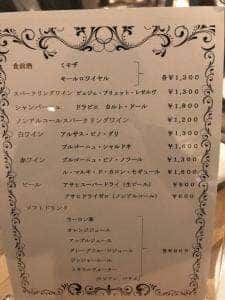 食前酒 ミモザ
キールロワイヤル 各¥1,300
スパークリングワイン ビュジェ・ブリュット・レゼルヴ ¥1,300
シャンパーニュ ドラピエ カルト・ドール ¥1,800
ノンアルコールスパークリングワイン ¥1,200
白ワイン アルザス・ピノ・グリ ¥1,300
ブルゴーニュ・シャルドネ ¥1,600
赤ワイン ブルゴーニュ・ピノ・ノワール ¥1,300
ル・マルキ・ド・カロン・セギュール ¥1,800
ビール アサヒスーパードライ (生ビール) ¥900
アサヒドライゼロ (ノンアルコール) ¥600
ソフトドリンク
ウーロン茶
オレンジジュース
アップルジュース
グレープフルーツジュース
ジンジャーエール
ミネラルウォーター